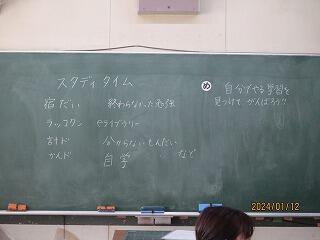 スタディタイム
宿だい 終わらなかった勉強
ラッコタン eライブラリー
計ド 分からないもんだい
かんド 自学 など
め 自分でやる学習を
見つけて がんばろう!!
2024/01/12